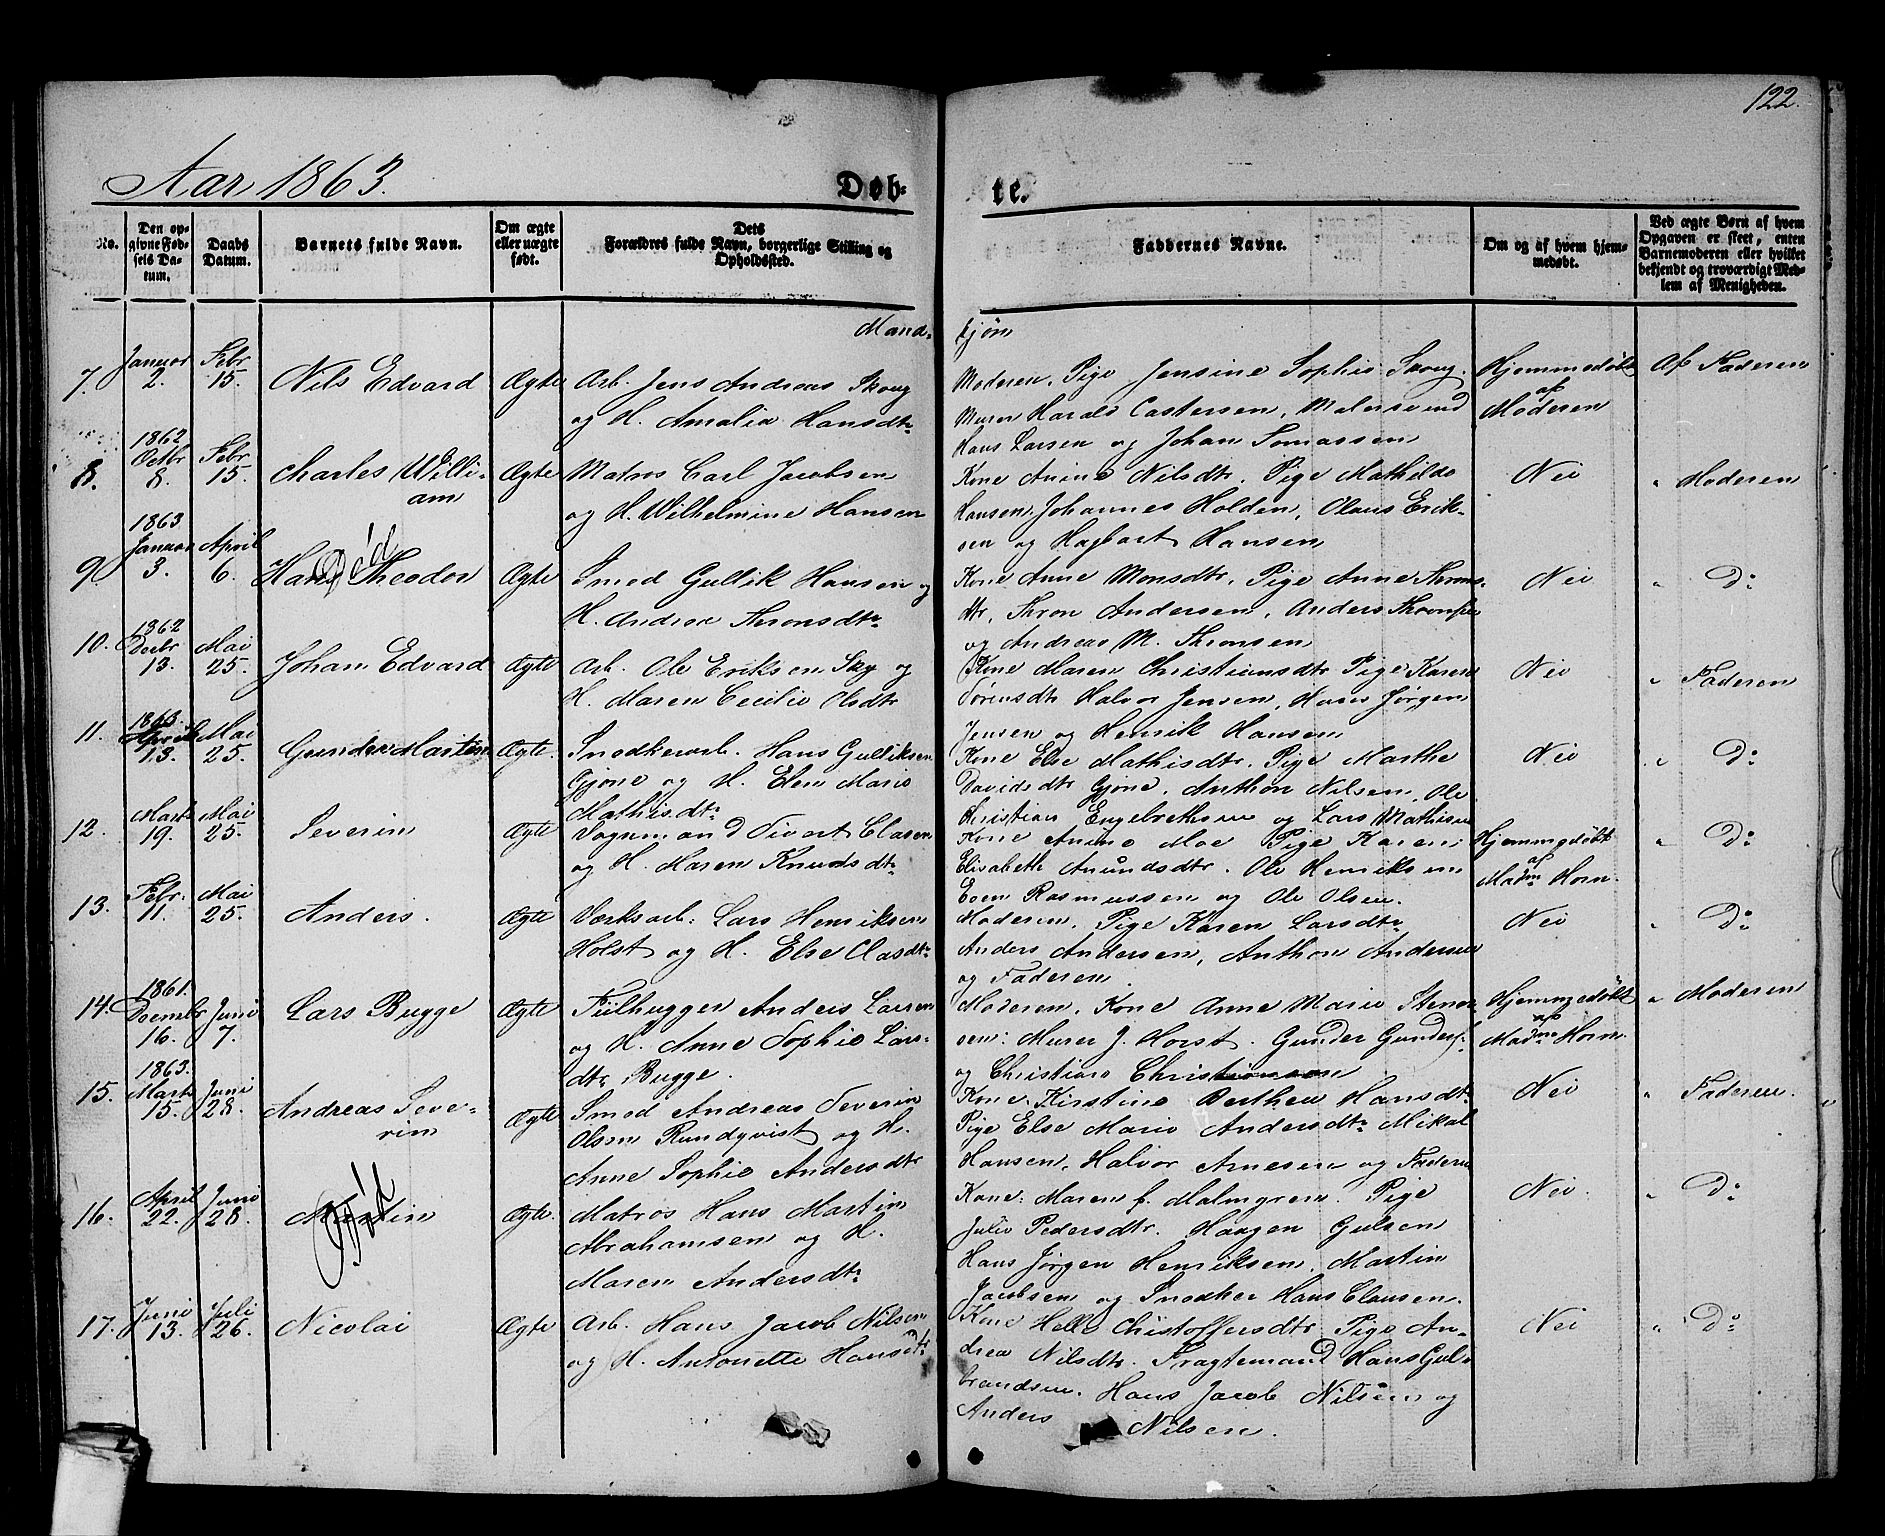 122.
Aar 1863.
Døb-
te.
No.
Den op-
givne Fød-
sels Da-
tum.
Daabs
Datum.
Barnets fulde Navn.
Om ægte
eller uægte
født.
Dets
Forældres fulde Navn, borgerlige Stilling og
Opholdssted.
Faddernes Navne.
Om og af hvem hjem-
medøbt.
Ved ægte Børn af hvem
Opgaven er skeet, enten
Barnemoderen eller hvilket
bekjendt og troværdigt Med-
lem af Menigheden.
Mand-
kjøn
7.
Januar
2.
Febr
15.
Nils Edvard
Ægte
Arb. Jens Andreas Skoug
og H. Amalia Hansdtr
Moderen, Pige Jensine Sophie Skoug.
Murer Harald Castersen, Malersvend
Hans Larsen og Johan Tomassen
Hjemmedøbt
af
Moderen
Af Faderen
8.
1862
Octbr
8.
Febr
15.
Charles Willi-
am
Ægte
Matros Carl Jacobsen
og H. Wilhelmine Hansen
Kone Anine Nilsdtr. Pige Mathilde
Hansen, Johannes Holden, Olaus Erik-
sen og Hagbart Hansen
Nei
" Moderen
9.
1863.
Januar
3.
April
6.
Hans Theodor
Død
Ægte
Smed Gullik Hansen og
H. Andrea Thronsdtr
Kone Anne Monsdtr, Pige Anne Throns-
dtr, Thron Andersen, Anders Thronsen
og Andreas M. Thronsen
Nei
" Do
10.
1862
Decbr
13.
Mai
25.
Johan Edvard
Ægte
Arb. Ole Eriksen Sky og
H. Maren Cecilie Olsdtr
Kone Maren Christiansdtr Pige Karen
Sørensdtr Halvor Jensen, Hans Jørgen
Jensen og Henrik Hansen
Nei
" Faderen
11.
1863.
April
13.
Mai
25.
Gunder Martin
Ægte.
Snedkerarb. Hans Gulliksen
Gjone og H. Elen Marie
Mathisdtr
Kone Else Mathisdtr. Pige Marthe
Davidsdtr Gjone, Anthon Nilsen, Ole
Christian Engebrethsen og Lars Mathisen
Nei
" Do
12.
Marts
19.
Mai
25.
Severin
Ægte
Vognmand Sivert Clasen
og H. Maren Knudsdtr
Kone Anine Moe Pige Karen
Elisabeth Amundsdtr. Ole Henriksen
Even Rasmussen og Ole Olsen.
Hjemmedøbt
af
Madm Horn.
" Do
13.
Febr.
11.
Mai
25.
Anders.
Ægte
Værksarb. Lars Henriksen
Holst og H. Else Clasdtr
Moderen, Pige Karen Larsdtr
Anders Andersen, Anthon Andersen
og Faderen
Nei
" Do
14.
1861.
Decembr
16.
Juni
7.
Lars Bugge
Ægte
Fiilhugger Anders Larsen
og H. Anne Sophie Lars-
dtr Bugge.
Moderen, Kone Anne Marie Stenor-
sen: Murer J. Horst. Gunder Gunders.
og Christian Christianson
Hjemmedøbt
af
Madme Horn.
" Moderen
15.
1863.
Marts
15.
Juni
28.
Andreas Seve-
rin
Ægte
Smed Andreas Severin
Olsen Rundqvist og H.
Anne Sophie Andersdtr
Kone Kirstine Berthea Hansdtr
Pige Else Marie Andersdtr Mikal
Hansen, Halvor Arnesen og Faderen
Nei
" Faderen.
16.
April
22.
Juni
28.
Martin
Død
Ægte.
Matros Hans Martin
Abrahamsen og H.
Maren Andersdtr
Kone: Maren f. Malmgren. Pige
Julie Pedersdtr. Haagen Gulsen
Hans Jørgen Henriksen, Martin
Jacobsen og Snedker Hans Clausen.
Nei.
" Do
17.
Juni
13.
Juli
26.
Nicolai
Ægte
Arb. Hans Jacob Nilsen
og H. Antonette Hansdtr
Kone Helle Christoffersdtr. Pige An-
drea Nilsdtr. Fragtemand Hans Gul-
brandsen. Hans Jacob Nilsen og
Anders Nilsen.
Nei
" Do